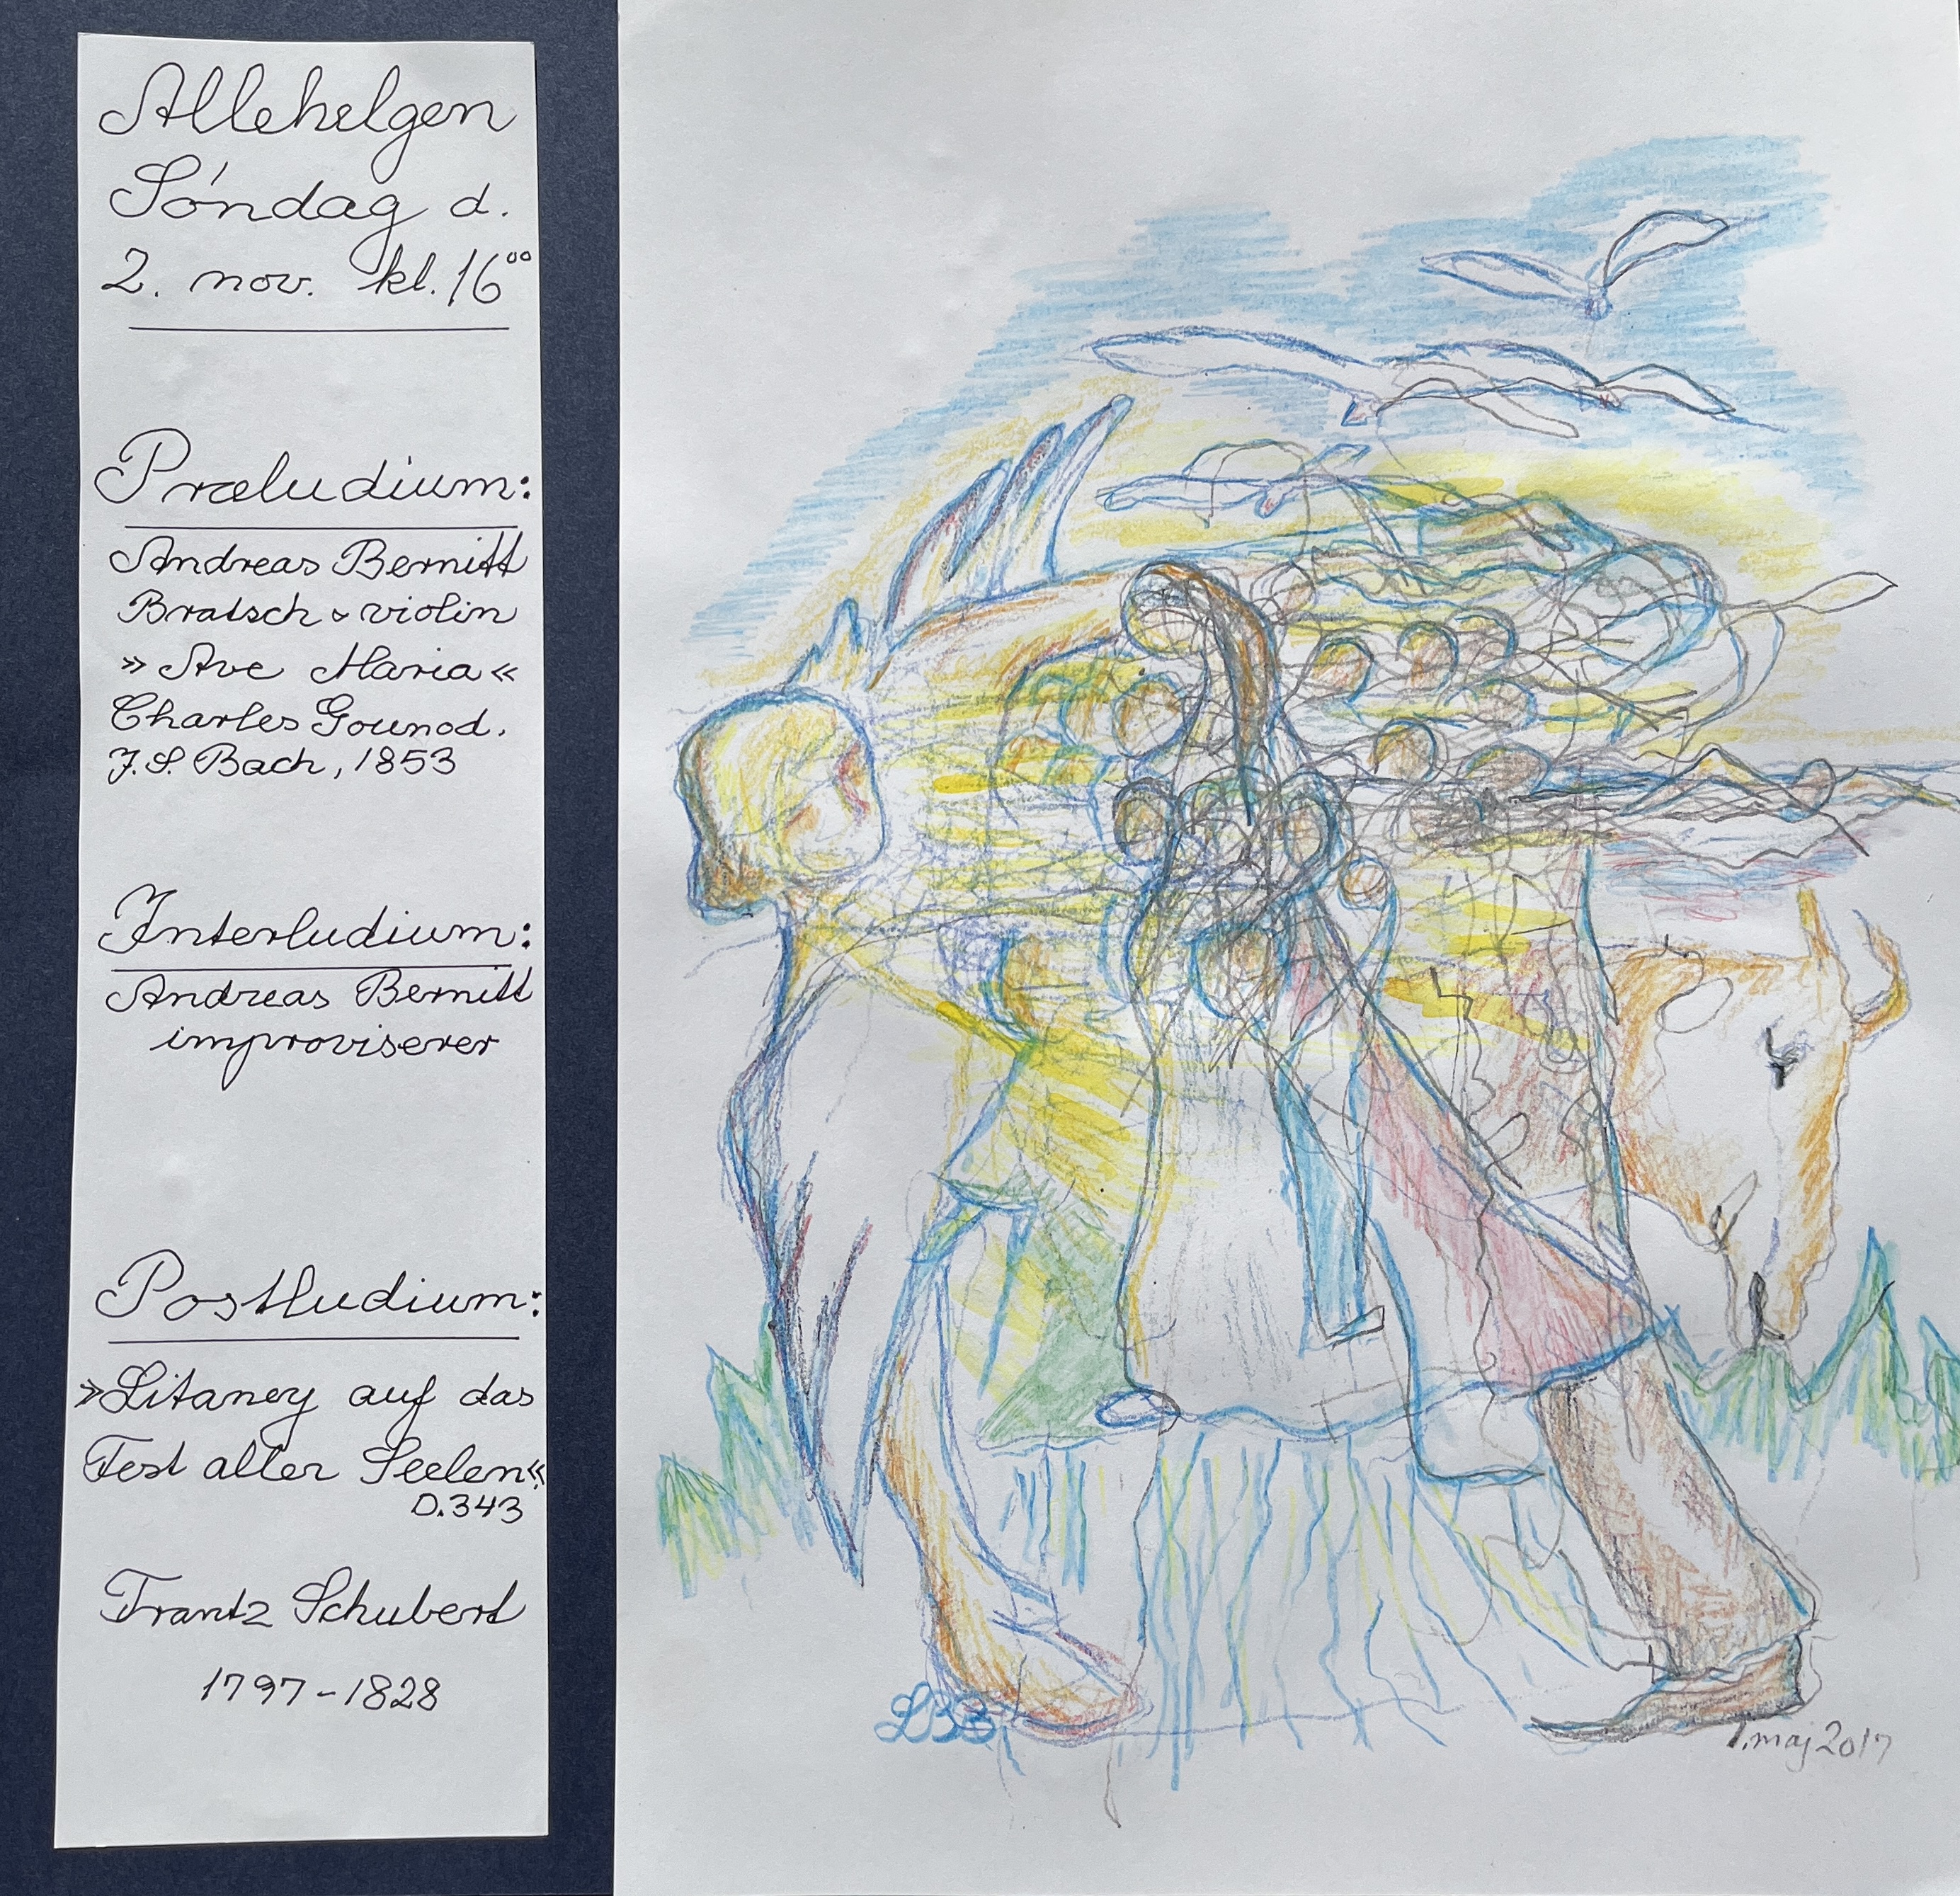 Allehelgen
Søndag d.
2. nov. kl. 16⁰⁰
Præludium:
Andreas Bernitt
Bratsch & violin
»Ave Maria«
Charles Gounod.
J. S. Bach, 1853
Interludium:
Andreas Bernitt
improviserer
Postludium:
»Litaney auf das
Fest aller Seelen«
D. 343
Frantz Schubert
1797-1828
LBB
1. maj 2017